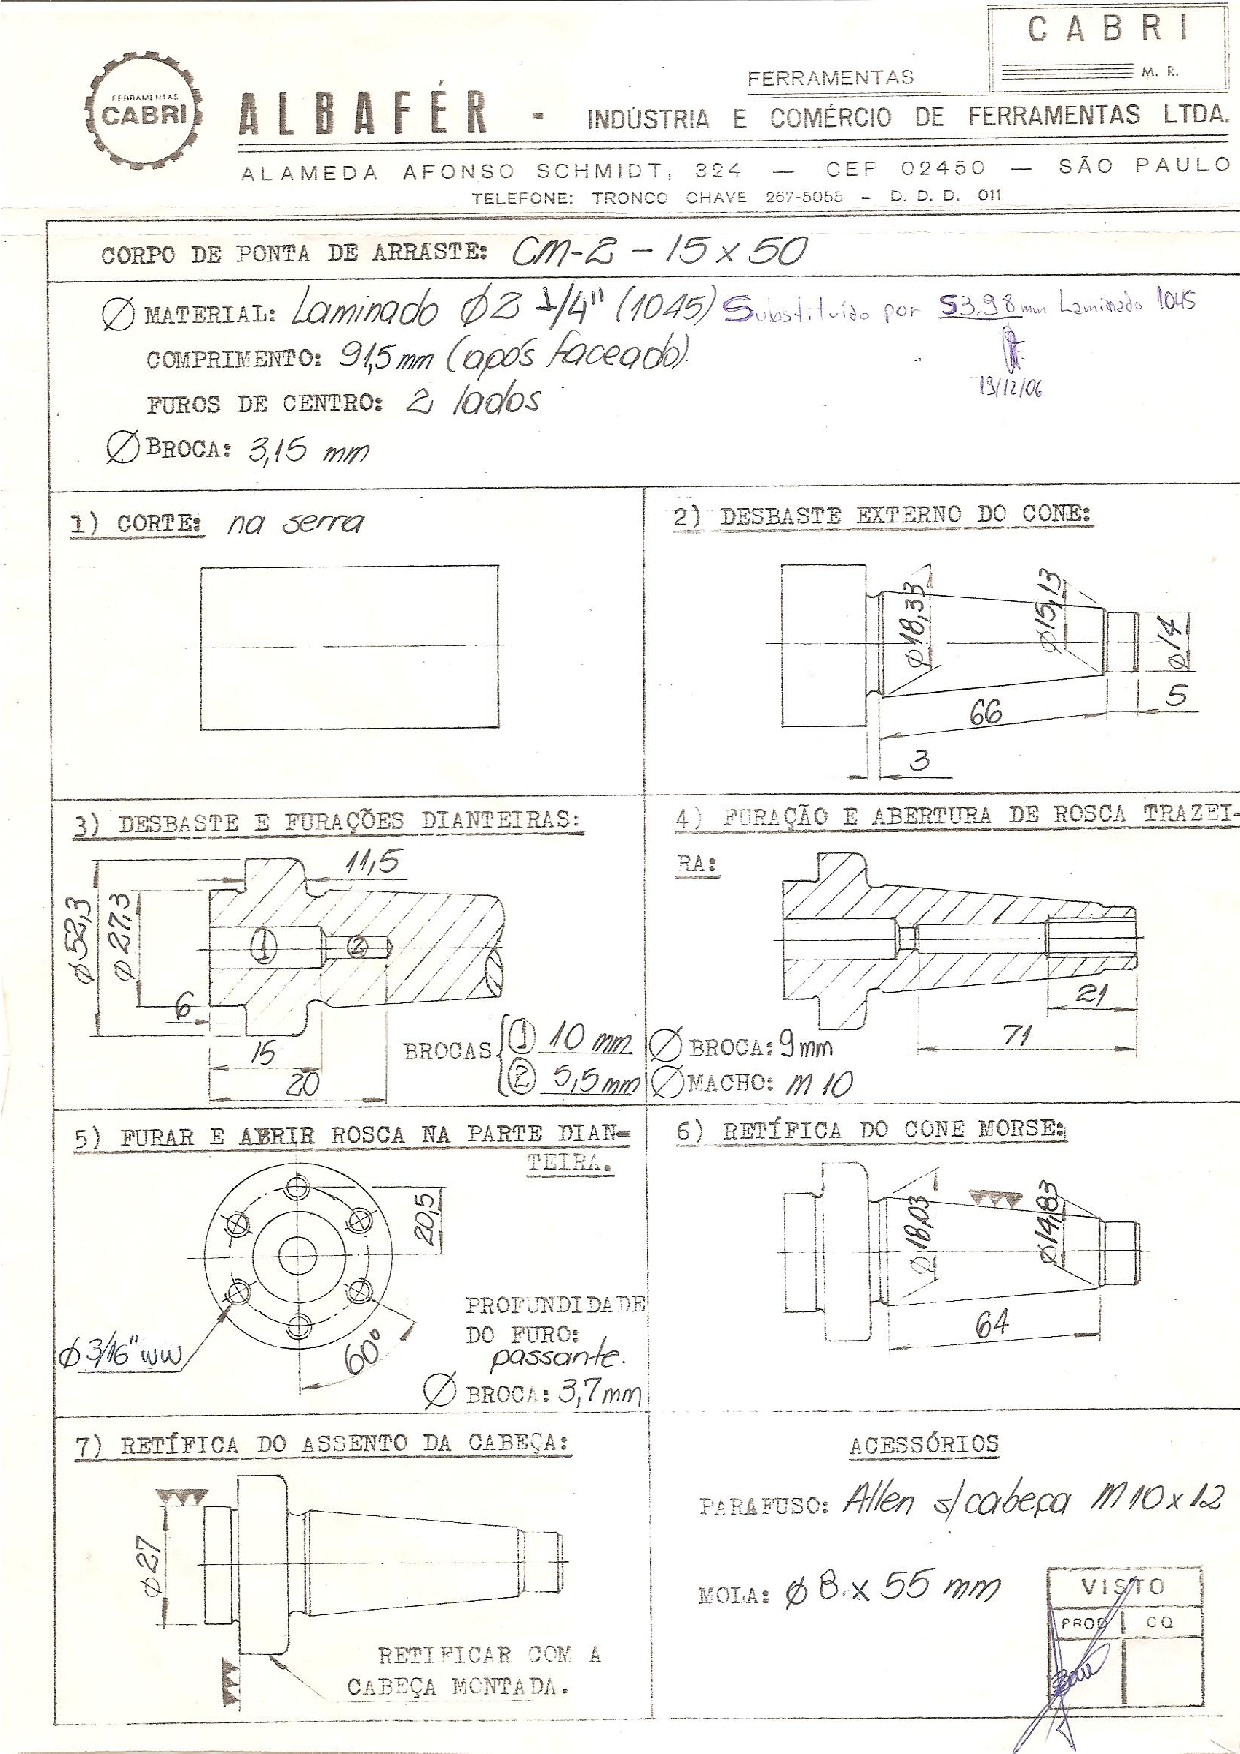 CABRI
M. R.
FERRAMENTAS
FERRAMENTAS
CABRI
ALBAFÉR - INDÚSTRIA E COMÉRCIO DE FERRAMENTAS LTDA.
ALAMEDA AFONSO SCHMIDT, 324 — CEP 02450 — SÃO PAULO
TELEFONE: TRONCO CHAVE 267-5055 - D. D. D. 011
CORPO DE PONTA DE ARRASTE: CM-2 - 15 x 50
Ø MATERIAL: Laminado Ø 2 1/4" (1045) Substituído por 53,98mm Laminado 1045
COMPRIMENTO: 91,5 mm (após faceado)
19/12/06
FUROS DE CENTRO: 2 lados
Ø BROCA: 3,15 mm
1) CORTE: na serra
2) DESBASTE EXTERNO DO CONE:
Ø18,33
Ø15,13
Ø14
66
5
3
3) DESBASTE E FURAÇÕES DIANTEIRAS:
11,5
Ø52,3
Ø27,3
1
2
6
15
20
BROCAS
1 10 mm
2 5,5 mm
4) FURAÇÃO E ABERTURA DE ROSCA TRAZEI-
RA:
21
71
Ø BROCA: 9mm
Ø MACHO: M 10
5) FURAR E ABRIR ROSCA NA PARTE DIAN-
TEIRA.
20,5
60°
Ø 3/16" WW
PROFUNDIDADE
DO FURO:
passante.
Ø BROCA: 3,7mm
6) RETÍFICA DO CONE MORSE:
Ø18,03
Ø14,83
64
7) RETÍFICA DO ASSENTO DA CABEÇA:
Ø27
RETIFICAR COM A
CABEÇA MONTADA.
ACESSÓRIOS
PARAFUSO: Allen s/cabeça M10 x 12
MOLA: Ø 8 x 55 mm
VISTO
PROD CQ